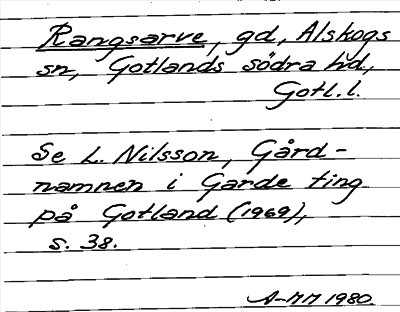 Rangsarve, gd, Alskogs
sn, Gotlands södra hd,
Gotl. l.
Se L. Nilsson, Gård-
namnen i Garde ting
på Gotland (1969),
s. 38.
A-MM 1980.